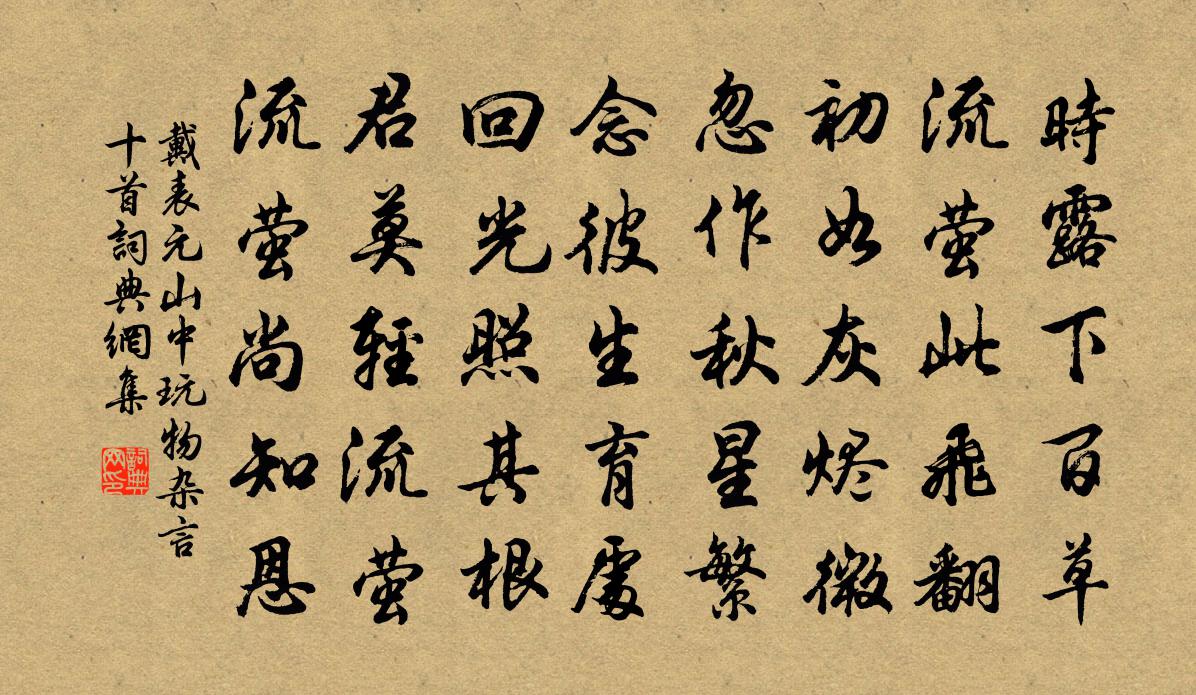 時露下百草
流萤此飛翻
初如灰烬微
忽作秋星繁
念彼生育處
回光照其根
君莫輕流萤
流萤尚知恩
戴表元山中玩物杂言
十首詞典網集
詞典网印